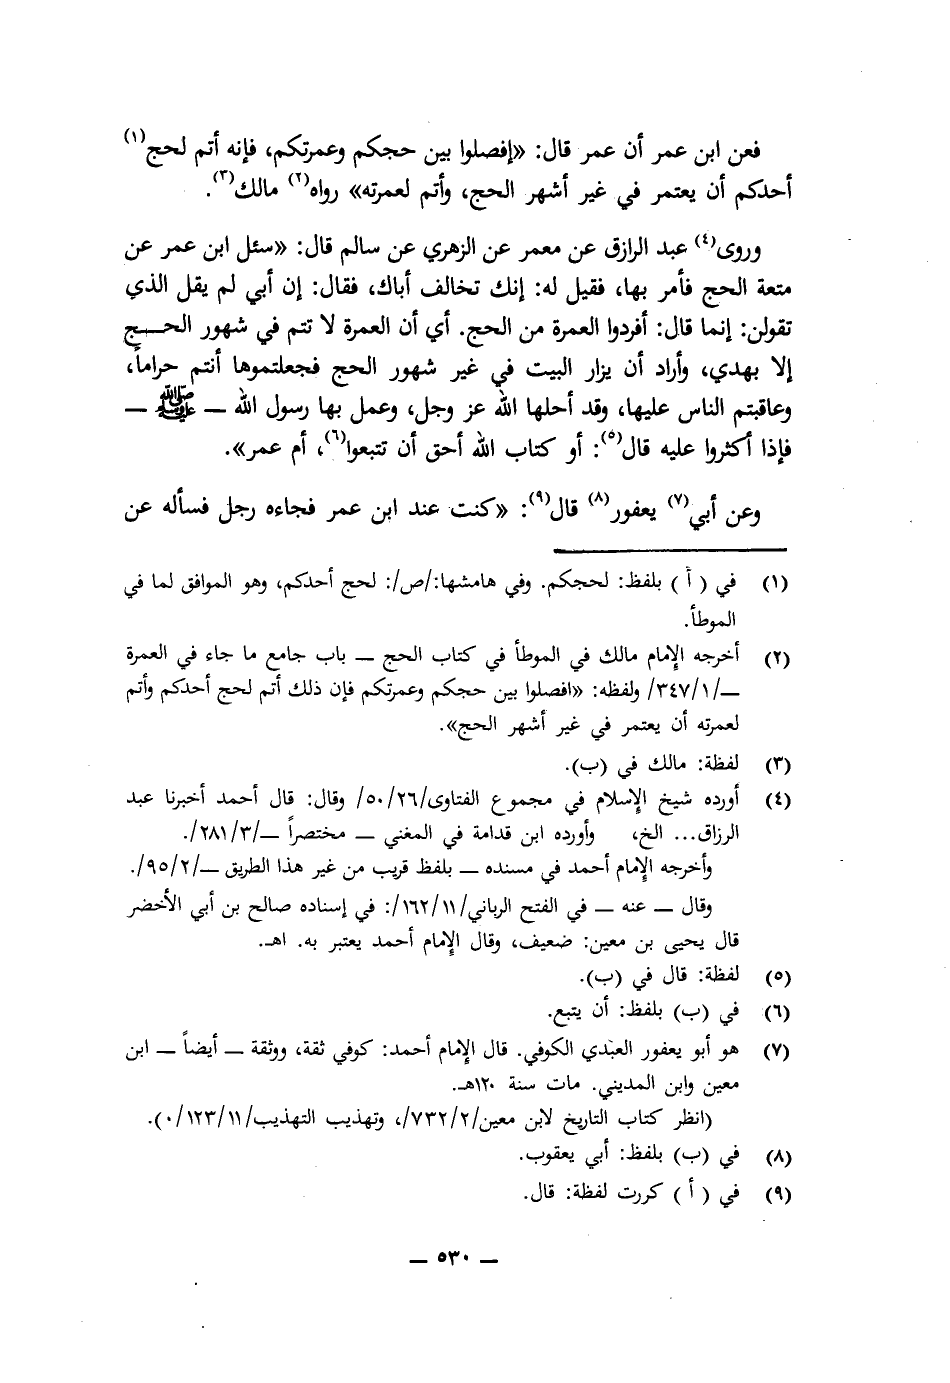 فعن ابن عمر أن عمر قال: «إفصلوا بين حجكم وعمرتكم، فإنه أتم لحج(١)
أحدكم أن يعتمر في غير أشهر الحج، وأتم لعمرته» رواه(٢) مالك(٣).
وروى(٤) عبد الرازق عن معمر عن الزهري عن سالم قال: «سئل ابن عمر عن
متعة الحج فأمر بها، فقيل له: إنك تخالف أباك، فقال: إن أبي لم يقل الذي
تقولن: إنما قال: أفردوا العمرة من الحج. أي أن العمرة لا تتم في شهور الحـــج
إلا بهدي، وأراد أن يزار البيت في غير شهور الحج فجعلتموها أنتم حراماً،
وعاقبتم الناس عليها، وقد أحلها الله عز وجل، وعمل بها رسول الله — ﷺ —
فإذا أكثروا عليه قال(٥): أو كتاب الله أحق أن تتبعوا(٦)، أم عمر».
وعن أبي(٧) يعفور(٨) قال(٩): «كنت عند ابن عمر فجاءه رجل فسأله عن
(١) في ( أ ) بلفظ: لحجكم. وفي هامشها:/ص/: لحج أحدكم، وهو الموافق لما في
الموطأ.
(٢) أخرجه الإمام مالك في الموطأ في كتاب الحج — باب جامع ما جاء في العمرة
—/٣٤٧/١/ ولفظه: «افصلوا بين حجكم وعمرتكم فإن ذلك أتم لحج أحدكم وأتم
لعمرته أن يعتمر في غير أشهر الحج».
(٣) لفظة: مالك في (ب).
(٤) أورده شيخ الإسلام في مجموع الفتاوى/٥٠/٢٦/ وقال: قال أحمد أخبرنا عبد
الرزاق... الخ، وأورده ابن قدامة في المغني — مختصراً —/٢٨١/٣/.
وأخرجه الإمام أحمد في مسنده — بلفظ قريب من غير هذا الطريق —/٩٥/٢/.
وقال — عنه — في الفتح الرباني/١٦٢/١١/: في إسناده صالح بن أبي الأخضر
قال يحيى بن معين: ضعيف، وقال الإمام أحمد يعتبر به. اهـ.
(٥) لفظة: قال في (ب).
(٦) في (ب) بلفظ: أن يتبع.
(٧) هو أبو يعفور العبدي الكوفي. قال الإمام أحمد: كوفي ثقة، ووثقة — أيضاً — ابن
معين وابن المديني. مات سنة ١٢٠هـ.
(انظر كتاب التاريخ لابن معين/٧٣٢/٢/، وتهذيب التهذيب/١٢٣/١١/٠).
(٨) في (ب) بلفظ: أبي يعقوب.
(٩) في ( أ ) كررت لفظة: قال.
— ٥٣٠ —